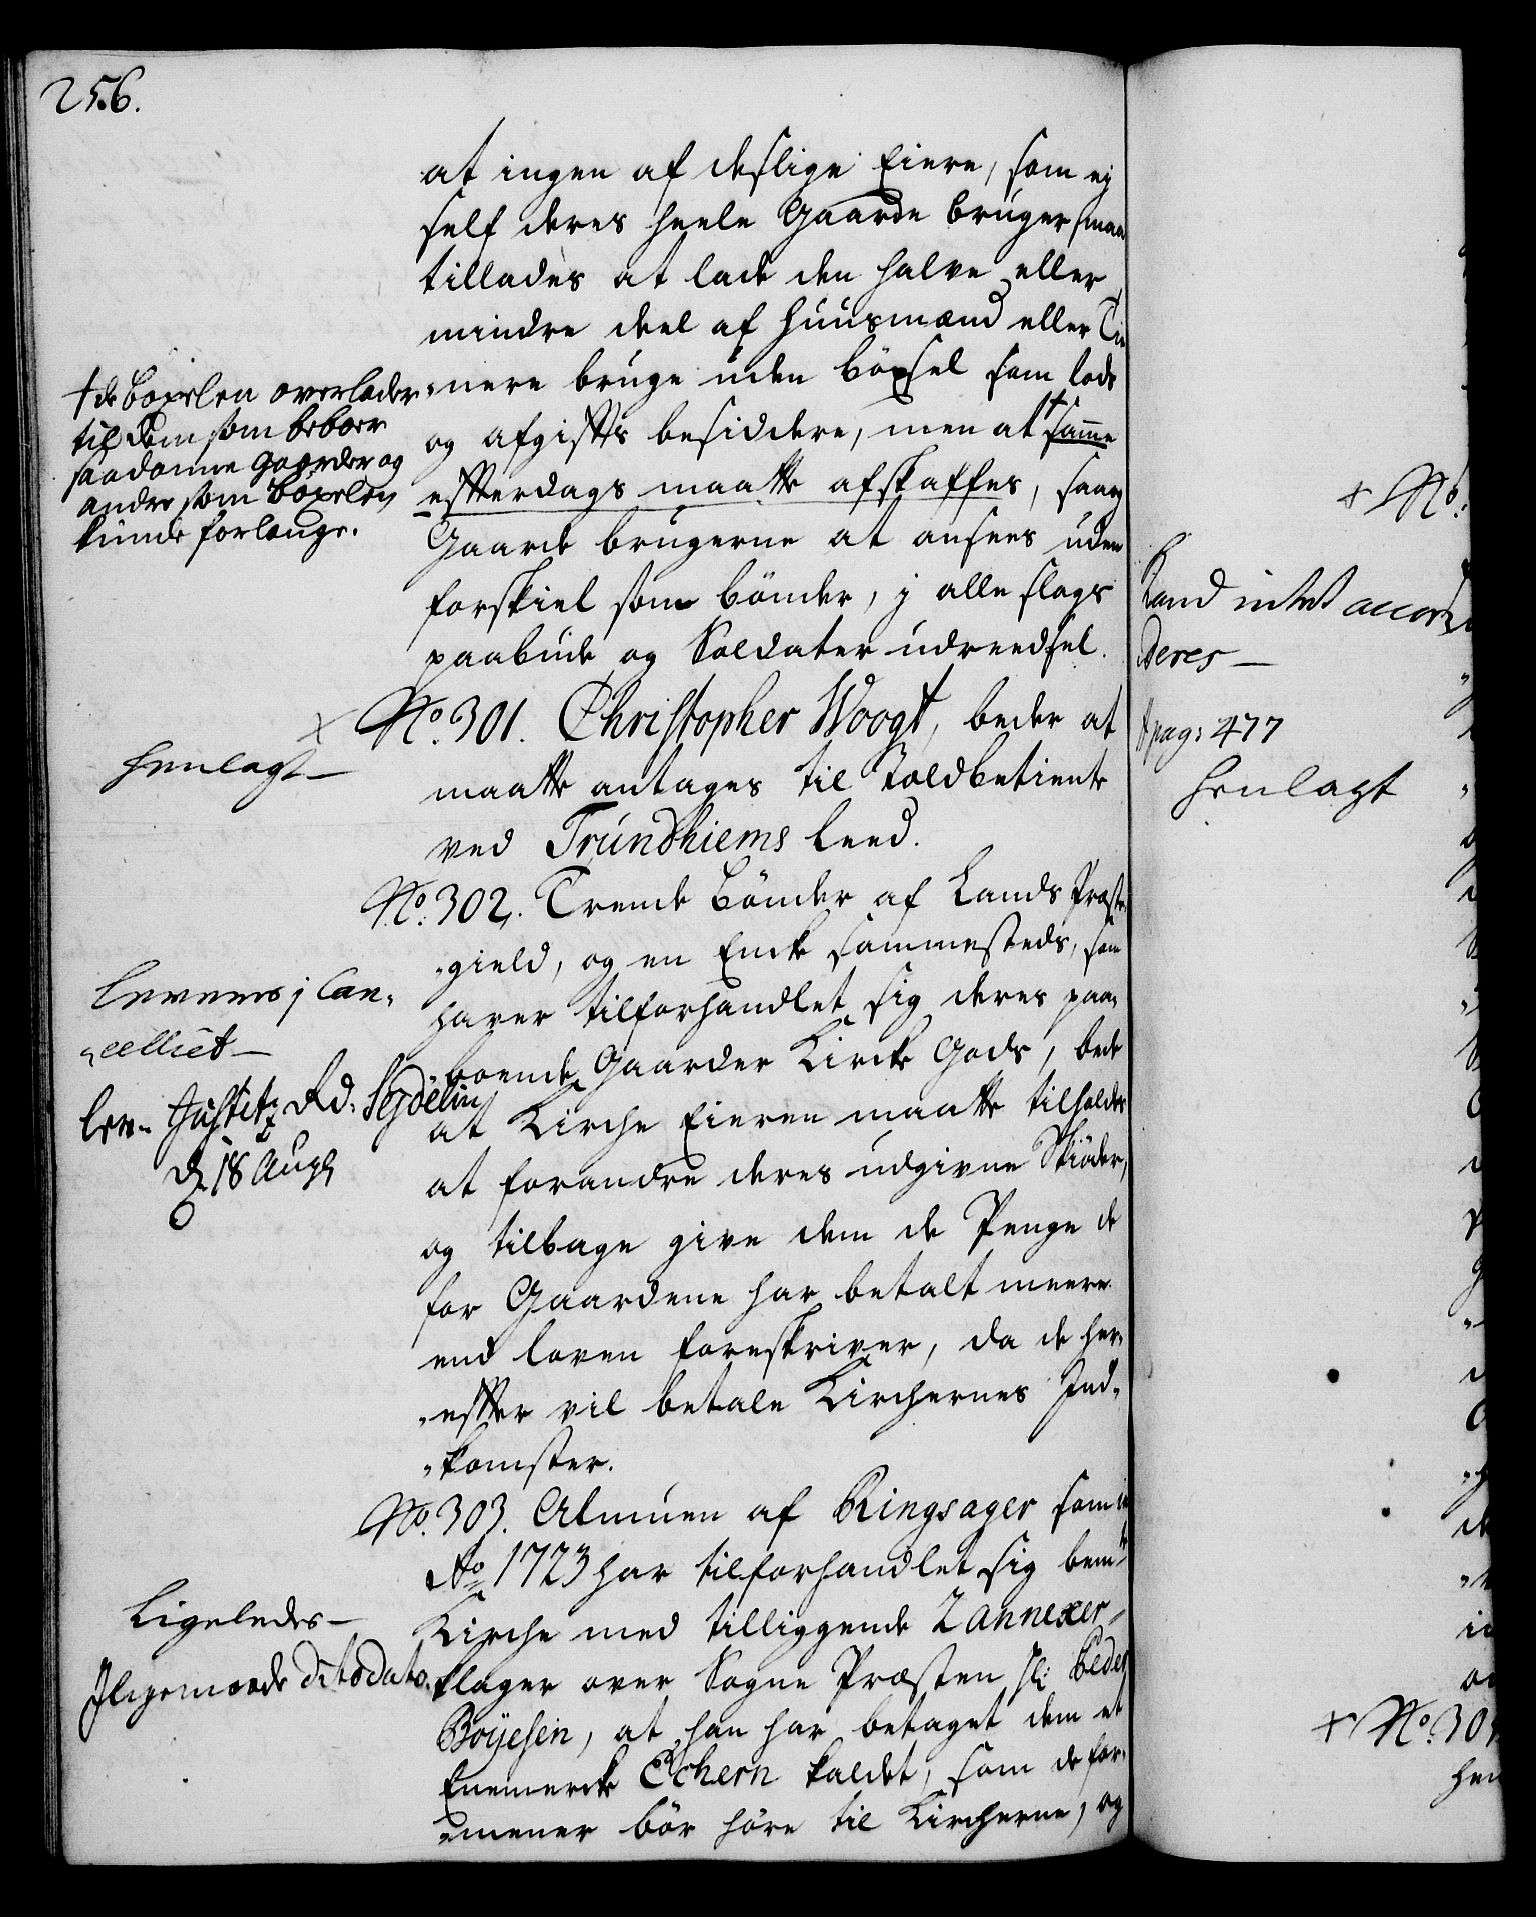 256.
at ingen af deslige Eiere, som ej
self deres heele Gaarde bruger, maa
tillades at lade den halve eller
mindre deel af Huusmænd eller Tie
„nere bruge uden böxsel som lods
og afgifts besiddere, men at † samme
effterdags maatte afskaffes, saa og
Gaarde brugerne at ansees uden
forskiel som bönder, j alle slags
paabude og Soldater udreedsel.
† de böxelen overlader
til dem som beboer
saadanne Gaarder og
andre som böxelen
kunde forlange.
No. 301. Christopher Woogt, beder at
maatte antages til Toldbetiente
ved Trundhiems leed.
henlagt
No. 302. Trende bönder af Lands Præste
„gield, og en Encke sammesteds, som
haver tilforhandlet sig deres paa„
„boende Gaarder Kircke Gods, bede
at Kirche Eieren maatte tilholdes
at forandre deres udgivne Skiöder,
og tilbage give dem de Penge de
for Gaardene har betalt meere
end loven foreskriver, da de her„
„effter vil betale Kirchernes Ind„
„komster.
leveres j Can„
„celliet
lev. Justitz Rd. Sejdelin
d. 18 Aug.
No. 303. Almuen af Ringsager som
Ao. 1723 har tilforhandlet sig bemte
Kirche med tilliggende 2 Annexer,
klager over Sogne Præsten Hr: Peder
Boÿesen, at han har betaget dem et
Enemercke Echern kaldet, som de for„
„mener bör höre til Kircherne, og
Ligeledes
Jligemaade dito dato.
No.
kand intet accor
deres
pag: 477
henlagt
No. 30